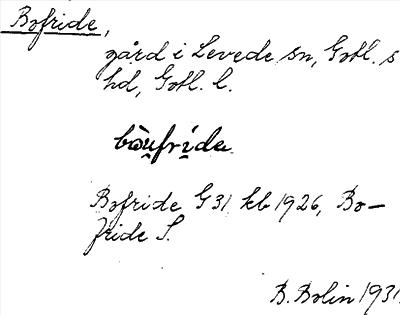 Bofride,
gård i Levede sn, Gotl. s
hd, Gotl. l.
bòu̯frí̯da.
Bofride G 31 kb 1926, Bo-
fride S.
B. Bolin 1931.